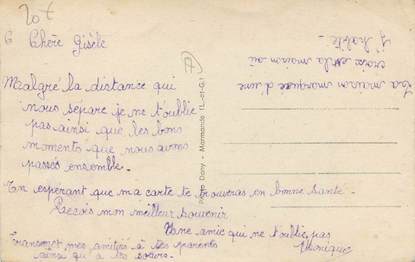 20 €
6 Chère Gisèle
Malgré la distance qui
nous sépare je ne t'oublie
pas ainsi que les bons
moments que nous avons
passés ensemble.
En espérant que ma carte te trouveras en bonne santé.
Reçois mon meilleur souvenir
Une amie qui ne t'oublie pas
Monique
Transmet mes amitiés à tes parents
ainsi qu'à tes soeurs.
La maison marquée d'une
croix est la maison où
j'habite.
Photo Dany - Marmande (L.-et-G.)